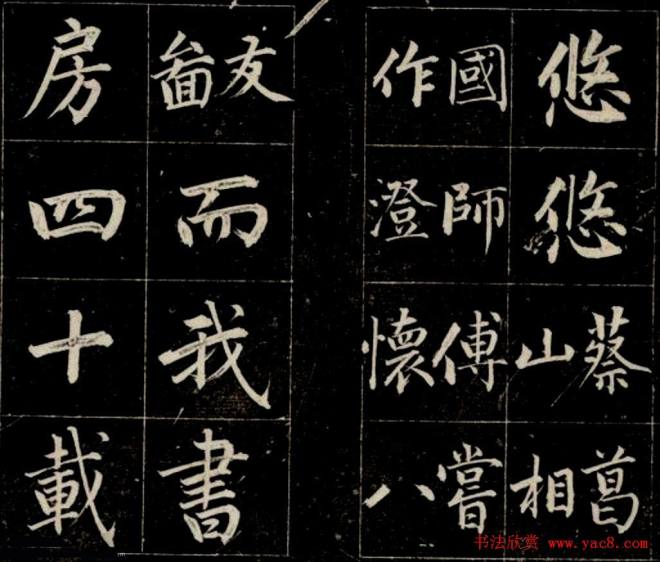 悠悠蔡葛山相
國師傅嘗作澄懷八
友啚而我書
房四十載
书法欣赏 www.yac8.com